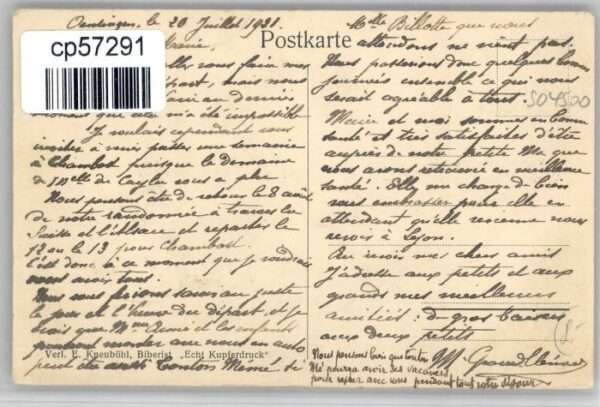 le 20 Juillet 1921.
cp57291
Postkarte
vous faire mes
mais nous
au dernier
moment que cela m'a été impossible
Je voulais cependant vous
inviter à venir passer une semaine
à Chambost puisque le domaine
de vous a plu
Nous pensons être de retour le 8 août
de notre randonnée à travers la
Suisse et l'Alsace et repartir le
12 ou le 13 pour Chambost.
C'est donc à ce moment que je voudrais
vous avoir tous.
Nous vous ferions savoir au juste
le jour et l'heure du départ, et je
crois que Mme et les enfants
pourront monter avec nous en auto
peut être aussi tonton si
Melle Billotte que nous
attendons ne vient pas.
Nous passerions donc quelques bonnes
journées ensemble ce qui nous
serait agréable à tous.
504500
Marie et moi sommes en bonne
santé et très satisfaites d'être
auprès de notre petite que
nous avons retrouvée en meilleure
santé. Elle me charge de bien
vous embrasser pour elle en
attendant qu'elle revienne nous
revoir à Lyon.
Au revoir mes chers amis
J'adresse aux petits et aux
grands mes meilleures
amitiés: de gros baisers
aux deux petits
Verl. E. Kneubühl, Biberist „Echt Kupferdruck".
Nous pensons bien que tonton
Mé pourra avoir des vacances
pour rester avec vous pendant tout votre séjour